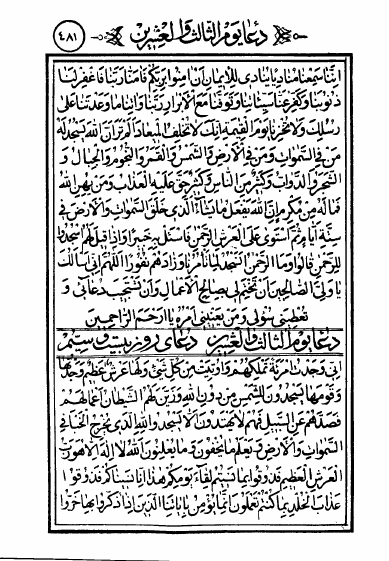 ٤٨١
دعا يوم الثالث والعشرين
اننا سمعنا مناديا ينادى للايمان ان امنوا بربكم فامنا ربنا فاغفر لنا
ذنوبنا وكفر عنا سيئاتنا وتوفنا مع الابرار ربنا واتنا ما وعدتنا على
رسلك ولا تخزنا يوم القيمة انك لا تخلف الميعاد الم تر ان الله يسجد له
من فى السموات ومن فى الارض والشمس والقمر والنجوم والجبال و
الشجر والدواب وكثير من الناس وكثير حق عليه العذاب ومن يهن الله
فما له من مكرم ان الله يفعل ما يشاء الذى خلق السموات والارض فى
ستة ايام ثم استوى على العرش الرحمن فاسئل به خبيرا واذا قيل لهم اسجدوا
للرحمن قالوا وما الرحمن انسجد لما تامرنا وزادهم نفورا اللهم انى اسالك
يا ولى الصالحين ان تختم لى بصالح الاعمال وان تستجيب دعائى و
تعطينى سؤلى ومن يعنينى امره يا ارحم الراحمين
دعا يوم الثالث والعشرين دعاى روز بيست و سيم
انى وجدت امرئة تملكهم واوتيت من كل شىء ولها عرش عظيم وجدتها
وقومها يسجدون للشمس من دون الله وزين لهم الشيطان اعمالهم
فصدهم عن السبيل فهم لا يهتدون الا يسجدوا لله الذى يخرج الخبا فى
السموات والارض ويعلم ما يخفون وما يعلنون الله لا اله الا هو رب
العرش العظيم فذوقوا بما نسيتم لقاء يومكم هذا انا نسيناكم وذوقوا
عذاب الخلد بما كنتم تعملون انما يؤمن باياتنا الذين اذا ذكروا بها خروا